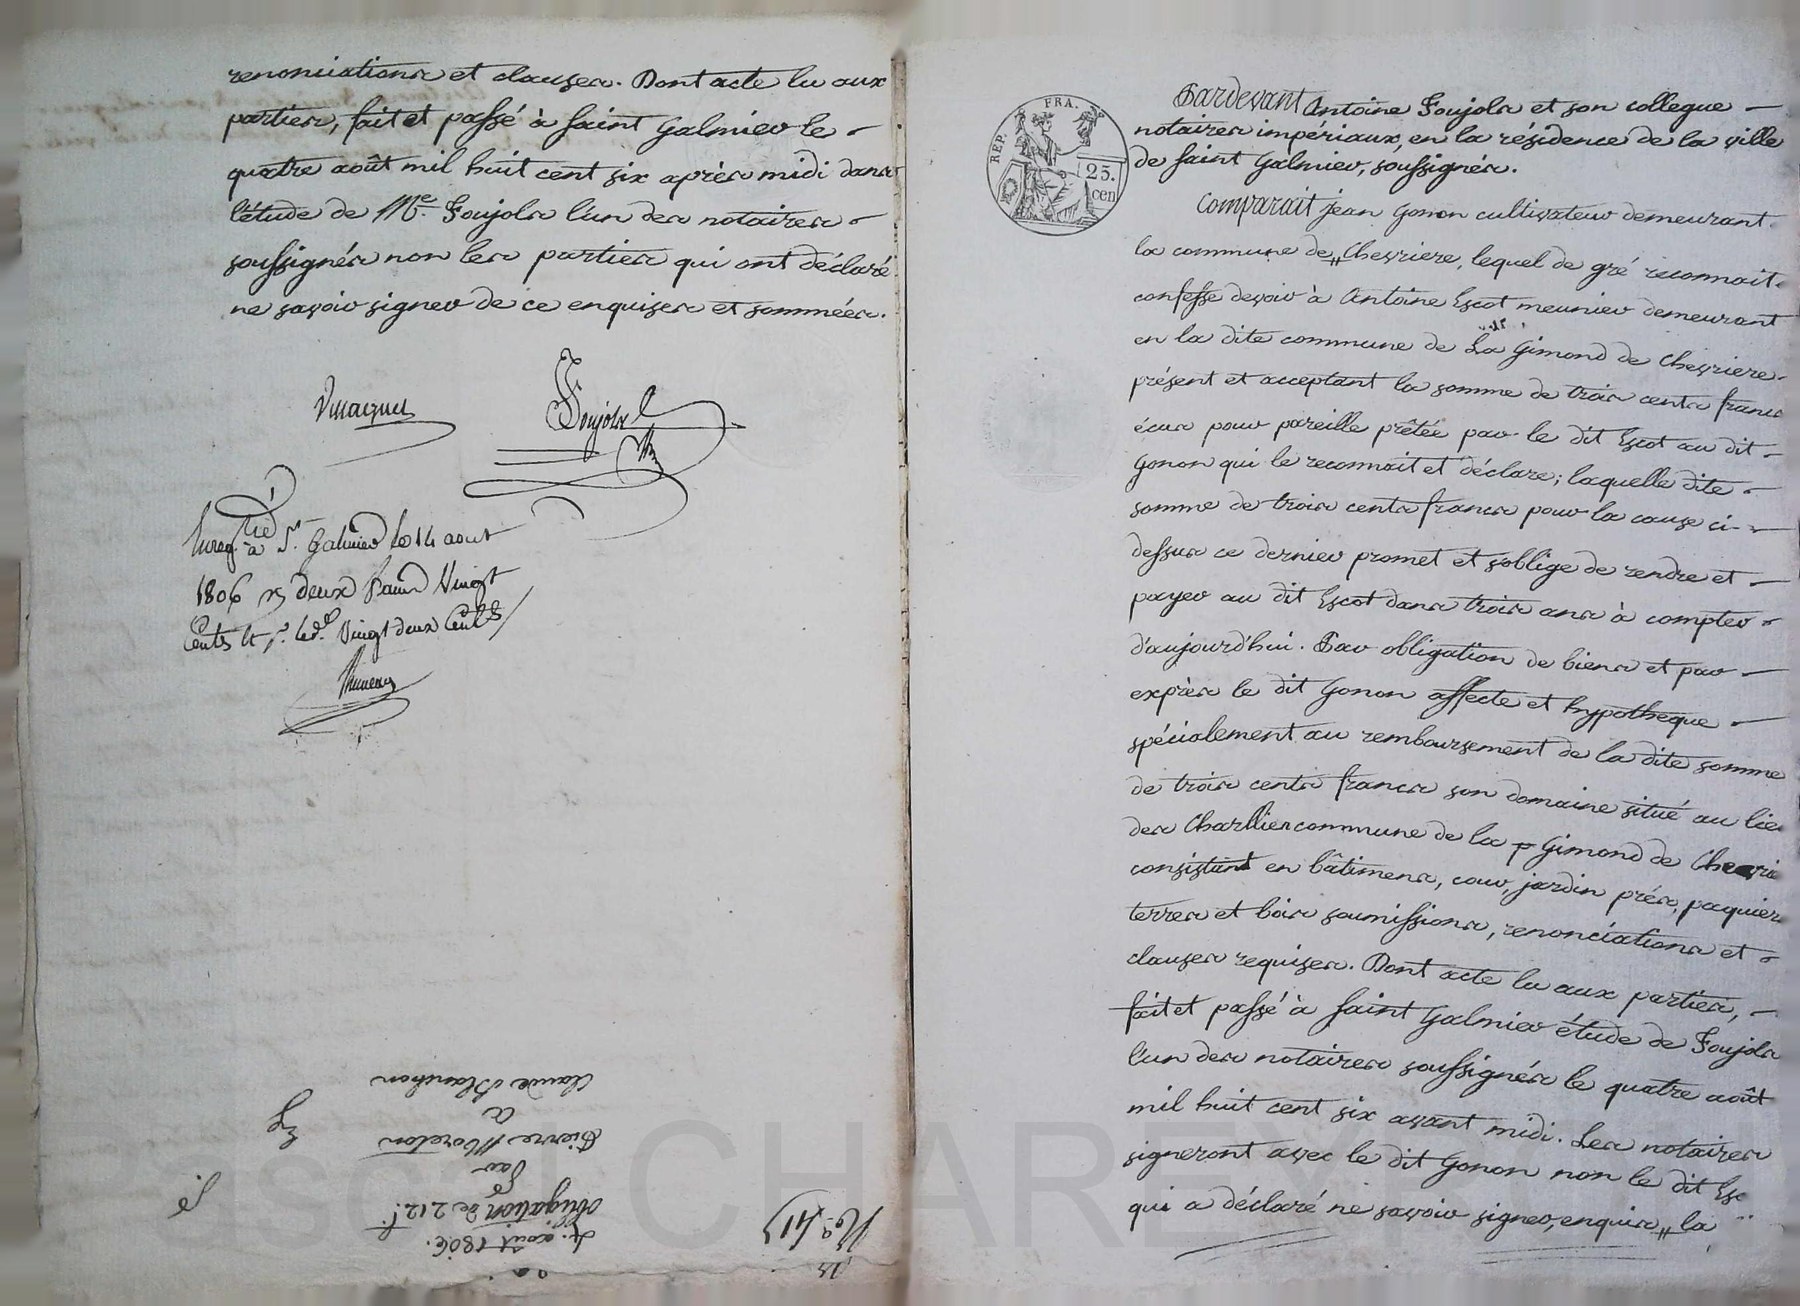 renonciations et clauses. Dont acte lu aux
parties, fait et passé à saint Galmier le
quatre août mil huit cent six après midi dans
l'étude de Me. Foujols l'un des notaires
soussignés non les parties qui ont déclaré
ne savoir signer de ce enquises et sommées.
Foujols
Enregtré à St. Galmier le 14 aout
1806 rs deux francs Vingt
Cents et pr. led. Vingt deux Cents
4. août 1806.
obligation de 212 f.
par
Pierre Moreton
a
Claude Blanchon
No. 411
REP. FRA.
25.
cen
Pardevant Antoine Foujols et son collegue
notaires impériaux, en la résidence de la ville
de saint Galmier, soussignés.
Comparait jean Gonon cultivateur demeurant
la commune de Chevriere, lequel de gré reconnait
confesse devoir à Antoine Escot meunier demeurant
en la dite commune de La Gimond de Chevriere
présent et acceptant la somme de trois cents francs
écus pour pareille prêtée par le dit Escot au dit
Gonon qui le reconnait et déclare; laquelle dite
somme de trois cents francs pour la cause ci-
dessus ce dernier promet et soblige de rendre et
payer au dit Escot dans trois ans à compter
d'aujourd'hui. Par obligation de biens et par
exprès le dit Gonon affecte et hypotheque
spécialement au remboursement de la dite somme
de trois cents francs son domaine situé au lieu
des Charllier commune de la Gimond de Chevrie
consistant en bâtimens, cour, jardin prés, paquiers
terres et bois soumissions, renonciations et
clauses requises. Dont acte lu aux parties,
fait et passé à saint Galmier étude de Foujols
l'un des notaires soussignés le quatre août
mil huit cent six avant midi. Les notaires
signeront avec le dit Gonon non le dit Esc
qui a déclaré ne savoir signer, enquis la
Pascal CHAREYRON